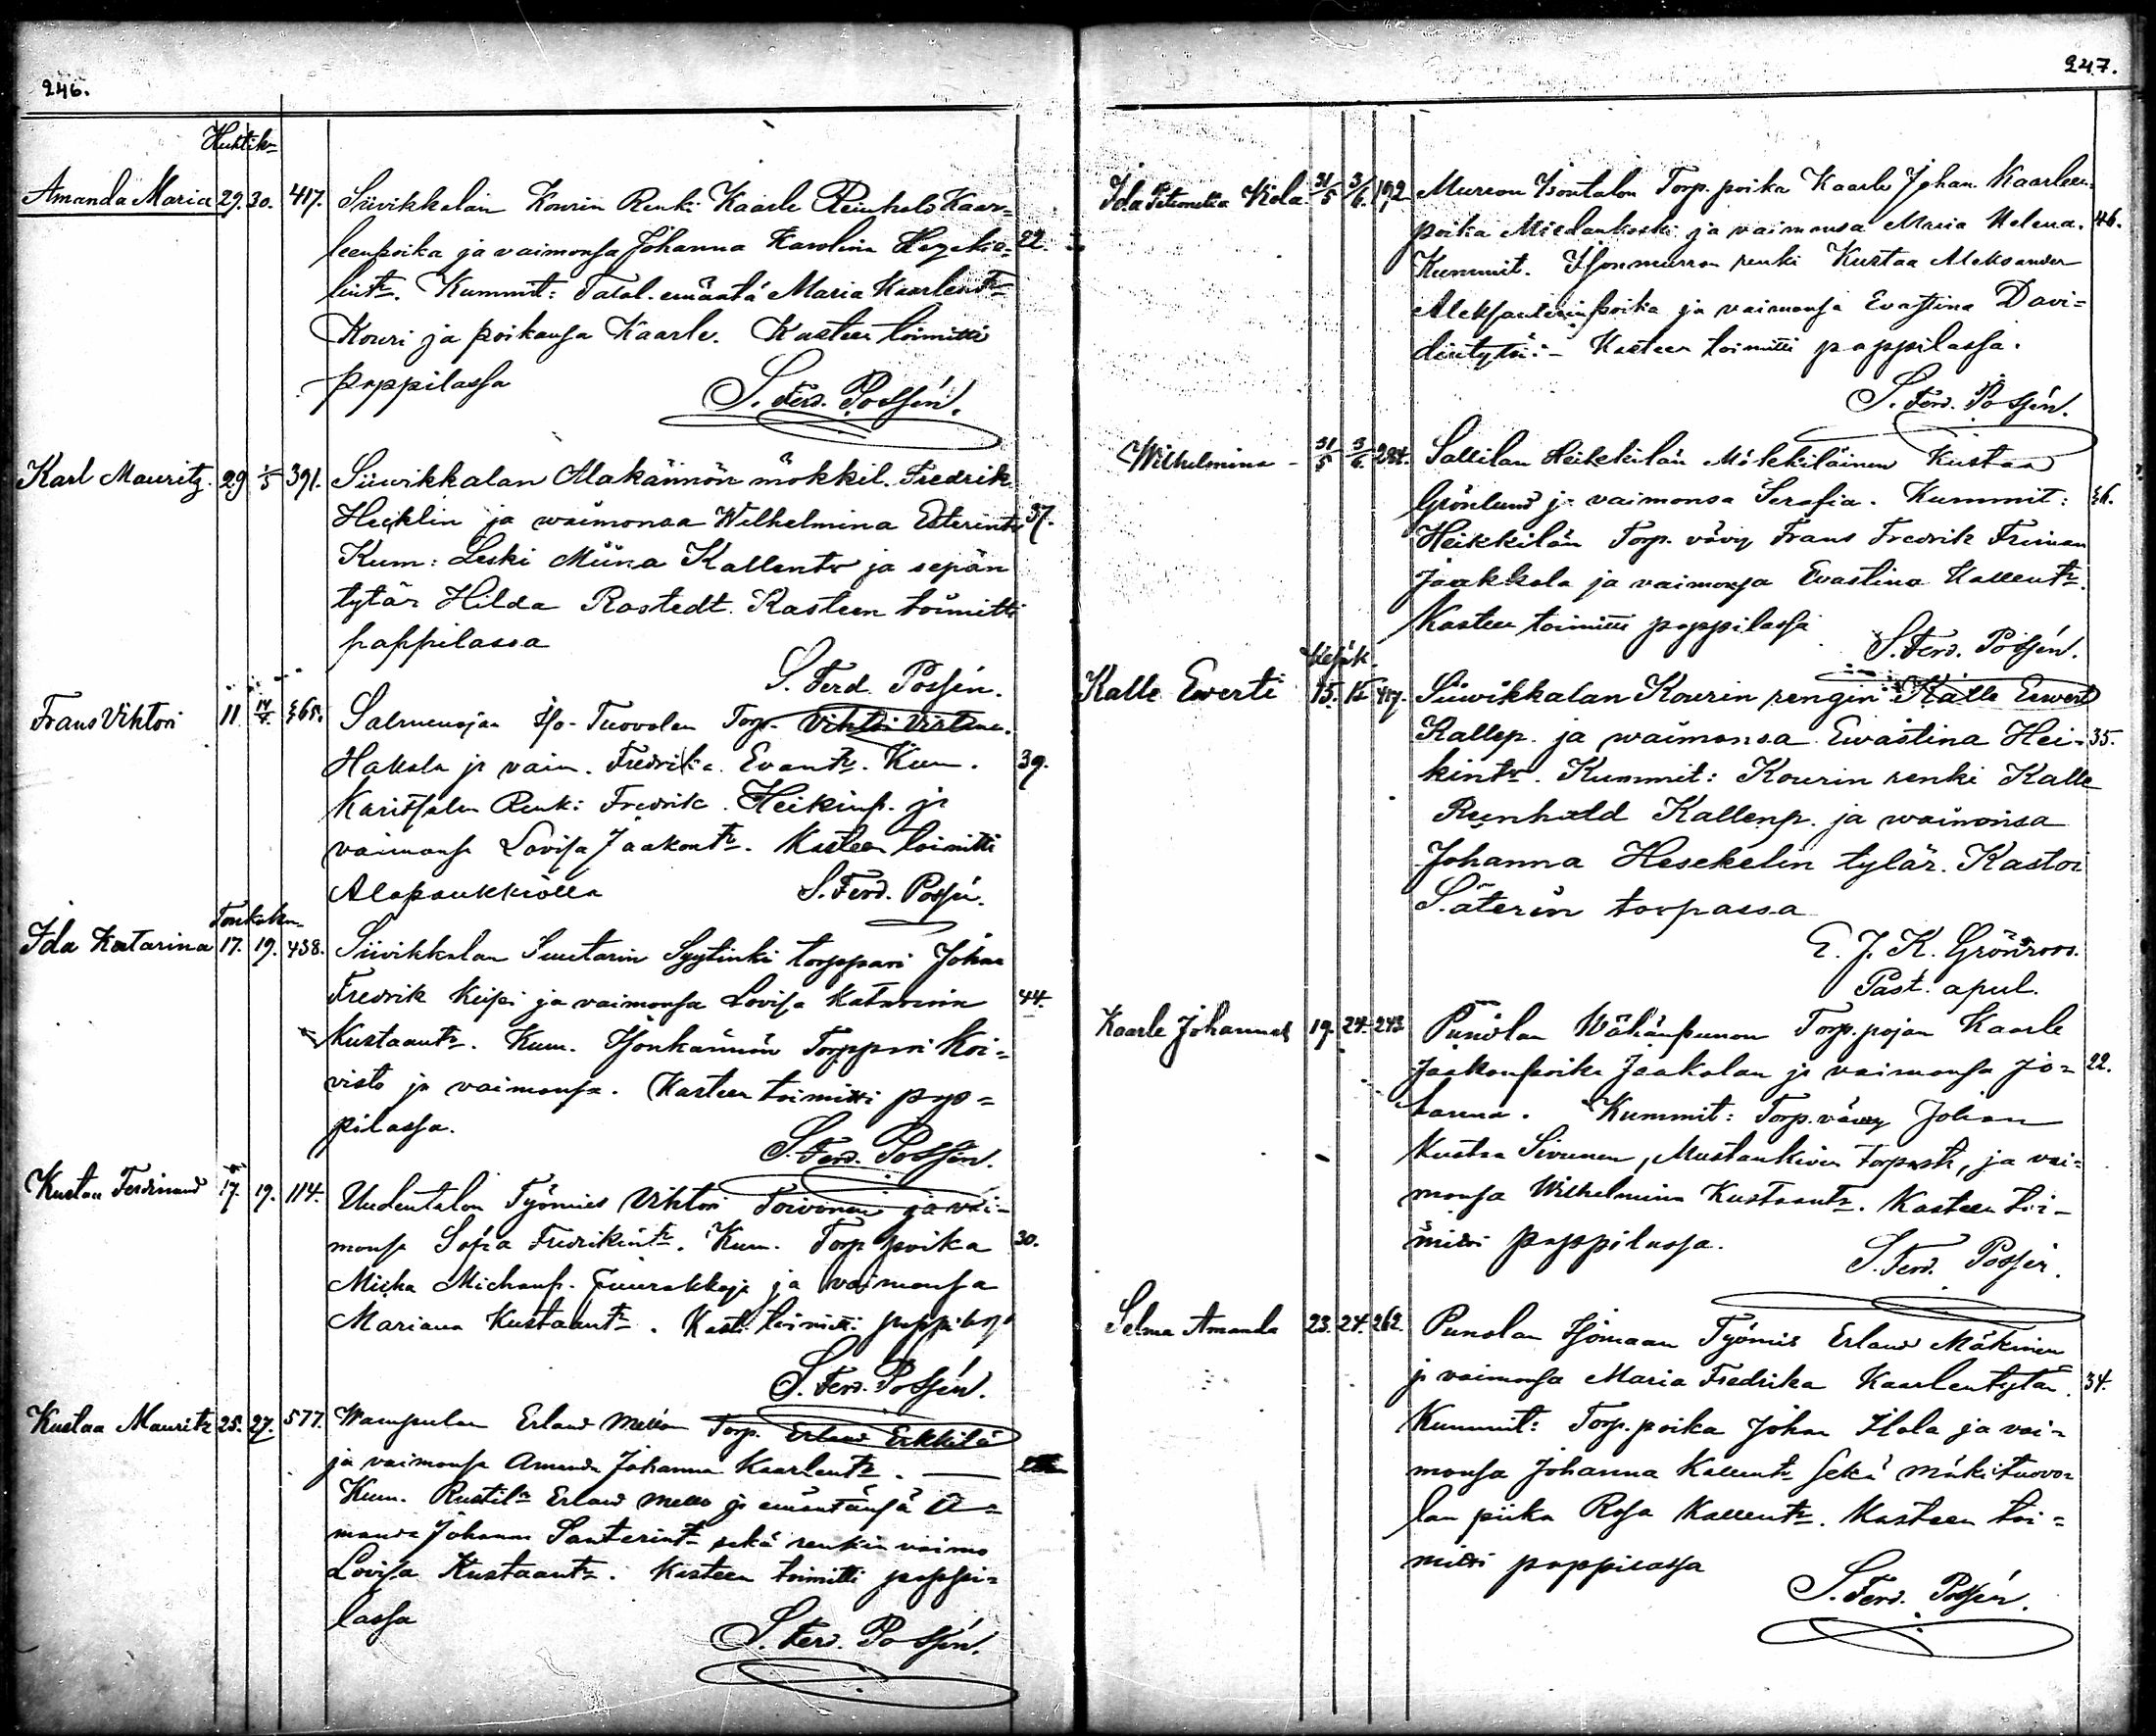 246.
Huhtik.
Amanda Maria 29. 30. 417. Siivikkalan Kourin Renki Kaarle Reinhold Kaar=
leenpoika ja vaimonsa Johanna Karolina Hezekie= 22.
lintr. Kummit: Talol. emäntä Maria Kaarlentr
Kouri ja poikansa Kaarle. Kasteen toimitti
pappilassa
S. Ferd. Possén.
Karl Mauritz. 29 1/5 391. Siiwikkalan Alakännön mökkil. Fredrik
Hecklin ja waimonsa Wilhelmina Esterintr 37.
Kum: Leski Miina Kallentr ja sepän
tytär Hilda Rostedt. Kasteen toimitti
pappilassa
S. Ferd. Possén.
Frans Vihtori 11. 565. Salmenojan Iso-Tuovolan Torp. Vihtori Virtanen.
Hakala ja vaim. Fredrika Evantr. Kum. 39.
Renki Fredrik Heikinp. ja
vaimonsa Lovisa Jaakontr. Kasteen toimitti
Alapaukkiolla S. Ferd. Possén.
Toukokn
Ida Katarina 17. 19. 438. Siivikkalan Suutarin Syytinki torppari Johan
Fredrik Keipi ja vaimonsa Lovisa Katariina 44.
Kustaantr. Kum. Isonkännön Torppari Koi=
visto ja vaimonsa. Kasteen toimitti pap=
pilassa.
S. Ferd. Possén.
Kustaa Ferdinand 17. 19. 114. Uudentalon Työmies Vihtori Toivonen ja vai=
monsa Sofia Fredrikintr. Kum. Torp. poika 30.
Micha Michanp. ja vaimonsa
Mariana Kustaantr. Kast. toimitti pappilassa
S. Ferd. Possén.
Kustaa Mauritz 25. 27. 577. Wampulan Erland Mellon Torp. Erland Erkkilä
ja vaimonsa Amanda Johanna Kaarlentr.
Kum. Rustil. Erland Mello ja emäntänsä A=
manda Johanna Santerintr sekä renkin vaimo
Lovisa Kustaantr. Kasteen toimitti pappi=
lassa
S. Ferd. Possén.
247.
Ida Petronella Kiela 31/5 3/6. 192 Murron Isontalon Torp. poika Kaarle Johan Kaarleen=
poika Miedankoski ja vaimonsa Maria Helena. 46.
Kummit. Isonmurron renki Kustaa Aleksander
Aleksanterinpoika ja vaimonsa Evastina Davi=
dintytär. Kasteen toimitti pappilassa.
S. Ferd. Possén.
Wilhelmina 31/5 3/6. 284. Sallilan Heikkilän Mäkkiläinen Kustaa
Grönlund ja vaimonsa Serafia. Kummit: 36.
Heikkilän Torp. vävy Frans Fredrik Friman
Jaakkola ja vaimonsa Evastina Kallentr.
Kasteen toimitti pappilassa
S. Ferd. Possén.
Kesäk.
Kalle Ewerti 15. 15. 417. Siiwikkalan Kourin rengin Kalle Ewert
Kallep. ja waimonsa Ewastina Hei= 35.
kintr. Kummit: Kourin renki Kalle
Reinhold Kallenp. ja waimonsa
Johanna Hesekelin tytär. Kastoi
Säterin torpassa
E. J. K. Grönroos.
Past. apul.
Kaarle Johannes 19. 24. 243 Punolan Wähänpunon Torp. pojan Kaarle
Jaakonpoika Jaakolan ja vaimonsa Jo= 22.
hanna. Kummit: Torp. vävy Johan
Kustaa Sivunen, Mustankiven torpasta, ja vai=
monsa Wilhelmina Kustaantr. Kasteen toi=
mitti pappilassa.
S. Ferd. Possén.
Selma Amanda 23. 24. 262. Punolan Isomaan Työmies Erland Mäkinen
ja vaimonsa Maria Fredrika Kaarlentytär. 34.
Kummit: Torp. poika Johan Ilola ja vai=
monsa Johanna Kallentr sekä Mäkituovo=
lan piika Rosa Kallentr. Kasteen toi=
mitti pappilassa
S. Ferd. Possén.